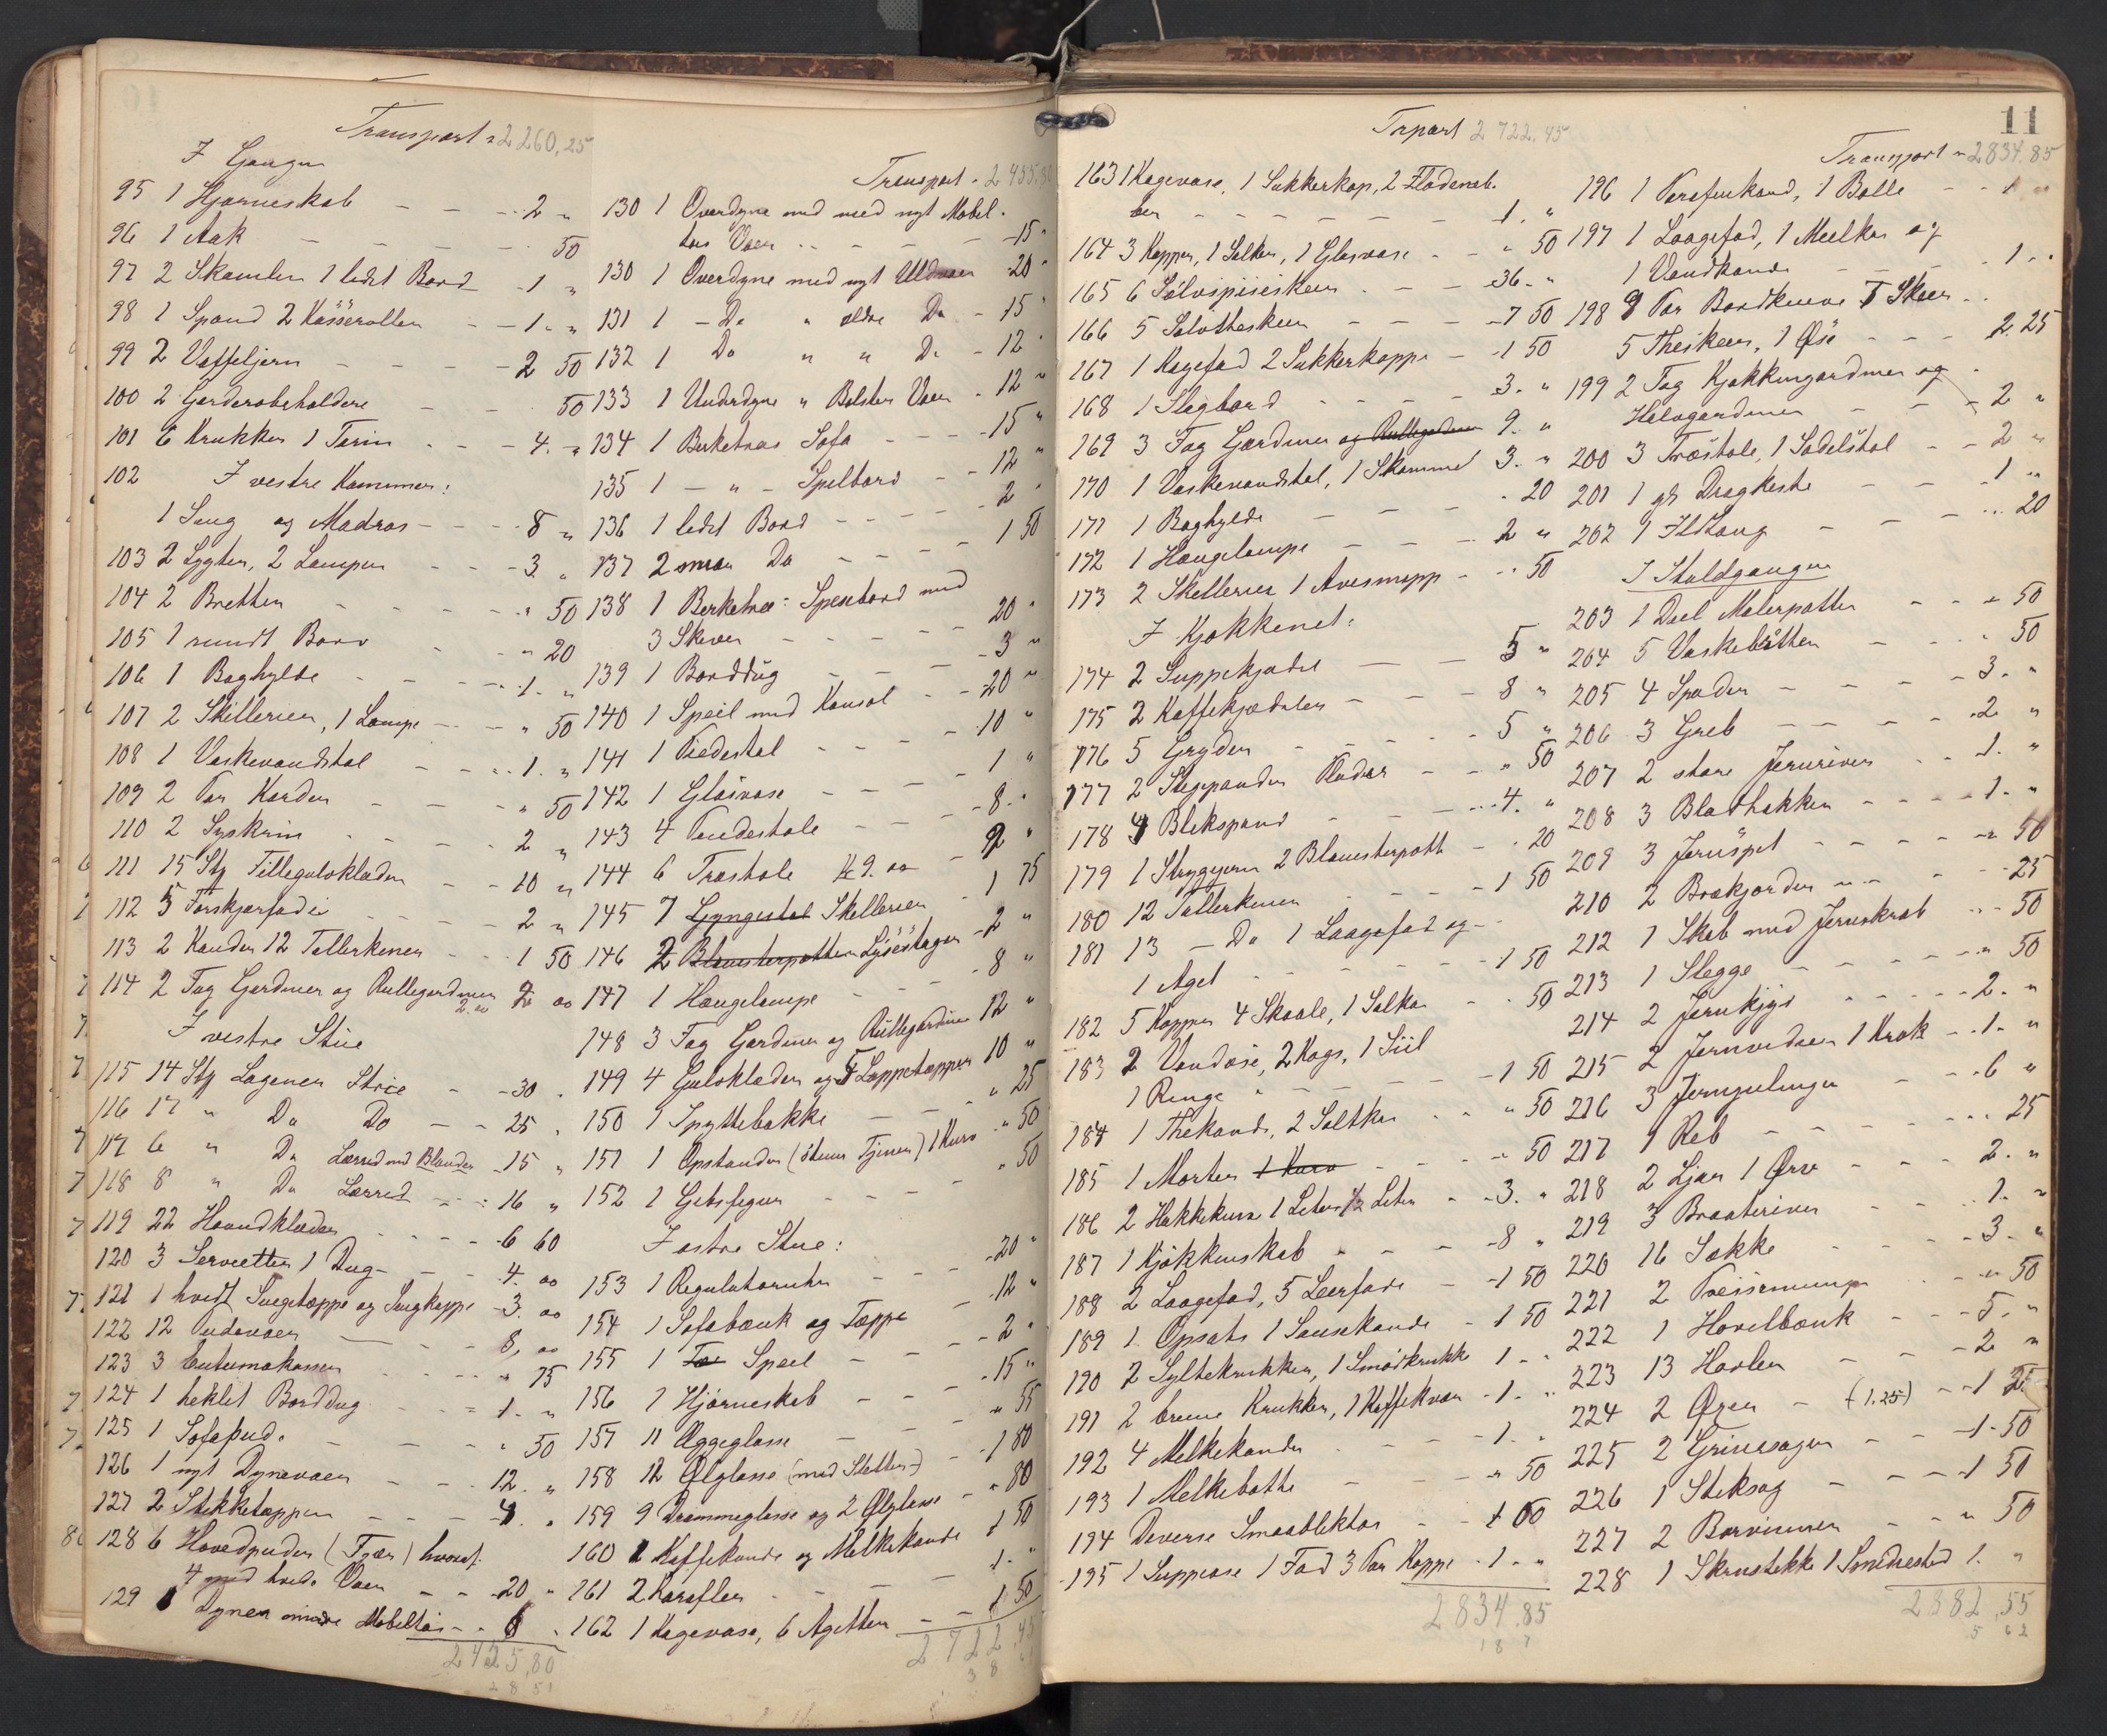 Transport 2260,25
I Gangen
95 1 Hjørneskab - - - 2 "
96 1 Aak - - - - 50
97 2 Skamler 1 lidet Bord - 1 "
98 1 Spand 2 Kasseroller - - 1 - "
99 2 Vaffeljern - - - - 2 50
100 2 Garderobeholdere - - 50
101 6 Krukker 1 Terin - - - 4 - "
102 I vestre Kammer:
1 Seng og Madras - - - 8 "
103 2 Lygter, 2 Lamper - - - 3 "
104 2 Bretter - - - - " 50
105 1 rundt Bord - - " 20
106 1 Baghylde - - - - 1 - "
107 2 Skillerier, 1 Lampe - - - " 50
108 1 Vaskevandstol - - - 1 - "
109 2 Par Karder - - - - " 50
110 2 Syskrin - - - - 2 "
111 15 Stk Tillegulvklæder - - 10 "
112 5 Forskjærfade - - - 2 "
113 2 Kander 12 Tallerkener - - 1 50
114 2 Fag Gardiner og Rullegardiner 2 00
2.00
I vestre Stue
115 14 Stk Lagener Strie - - 30 "
116 17 " Do Do - - 25 "
117 6 " Do Lærred med Blonder - 15 "
118 8 " Do Lærred - - - 16 "
119 22 Haandklæder - - - - 6 60
120 3 Servietter 1 Dug - - - 4. 00
121 1 hvidt Sengetæppe og Sengkappe - 3. 00
122 12 Pudevaer - - - 8, 00
123 3 - - - - " 75
124 1 heklet Borddug - - - 1 - "
125 1 Sofapude - - - - " 50
126 1 nyt Dynevaer - - - 12. "
127 2 Stikketæpper - - - 4. "
128 6 Hovedpuder (Fjær) hvoraf
4 med hvide Vaer - - 20 "
129 Dyner Mobeltøi - - 6 "
2425,80
Transport - 2455.80
130 1 Overdyne med med nyt Mobel-
tøis Vaer - - - - - 15 "
130 1 Overdyne med nyt Uldvaer 20 "
131 1 - Do " ældre Do - 15 "
132 1 Do " " Do - 12 "
133 1 Underdyne " Bolster Vaer - 12 "
134 1 Berketræs Sofa - - - 15 "
135 1 - " - Spelbord - - 12 "
136 1 lidet Bord - - - - 2 "
137 2 smaa Do - - - - 1 50
138 1 Berketræs Spesebord med
3 Skiver - - - - 20 "
139 1 Borddug - - - 3 "
140 1 Speil med Konsol - - 20 "
141 1 Piedestal - - - - 10 "
142 1 Glasvase - - - - 1 "
143 4 Pindestole - - - - 8 - "
144 6 Træstole Kr 9. 00 - 9 "
145 7 Gyngestol Skillerier - 1 75
146 2 Blomsterpotter Lysestager - 2 "
147 1 Hængelampe - - - 8 "
148 3 Fag Gardiner og Rullegardiner 12 "
149 4 Gulvklæder og 5 Lappetæpper 10 "
150 1 Spyttebakke - - - - " 25
151 1 Opstander (stum Tjener) 1 Kurv - " 50
152 1 Gibsfigur - - - - " 50
I østre Stue:
153 1 Regulatoruhr - - - 20 "
154 1 Sofabænk og Tæppe - 12 "
155 1 Speil - - - 2 "
156 1 Hjørneskab - - - 15 "
157 11 Æggeglasse - - - " 55
158 12 Ølglasse (med Stetter) - - 1 80
159 9 Drammeglasse og 2 Ølglasse - " 80
160 1 Kaffekande og Melkekande 1 50
161 2 Karafler - - - - 1 - "
162 1 Kagevase, 6 Asjetter - - 1 50
2722.45
11
Trpart 2722.45
163 1 Kagevase, 1 Sukkerkop, 2 Flødeneb-
ber - - - - - - 1. "
164 3 Kopper, 1 Saltkar, 1 Glasvase - - " 50
165 6 Sølvspiseskeer - - - 36 - "
166 5 Sølvtheskeer - - - - 7 50
167 1 Kagefad 2 Sukkerkoppe - - 1 50
168 1 Slagbord - - - - 3. "
169 3 Fag Gardiner og Rullegardiner 9. "
170 1 Vaskevandstol, 1 Skammel 3. "
171 1 Baghylde - - - - - 20
172 1 Hængelampe - - - - 2 "
173 2 Skillerier 1 Avismappe - - - 50
I Kjøkkenet:
174 2 Suppekjedel - - - 5 "
175 2 Kaffekjædeler - - - - 8 "
176 5 Gryder - - - - - 5 "
177 2 Stegpander - - " 50
178 4 Blekspand - - - - 4. "
179 1 Strygejern 2 Blomsterpotter - - 20
180 12 Tallerkener - - - - 1 50
181 13 - Do 1 Laagefad og -
1 Aget - - - - - - 1 50
182 5 Kopper 4 Skaale, 1 Saltkar - - 50
183 2 Vandøse, 2 Kogs, 1 Siil
1 Ringe - - - - - 1 50
184 1 Thekande, 2 Saltkar - - " 50
185 1 Morter 1 Kurv - - - - " 50
186 2 Hakkekniver 1 Liter 1/2 Liter - - 3. "
187 1 Kjøkkenskab - - - - 8 "
188 2 Laagefad, 5 Leerfade - - 1 50
189 1 Opsats 1 Sausekande - 1 50
190 2 Syltekrukker, 1 Smørkrukke 1 - "
191 2 brune Krukker, 1 Kaffekvern - 1 - "
192 4 Melkekander - - - - 1 - "
193 1 Melkebøtte - - - " 50
194 Diverse Smaablektøi - - 1 00
195 1 Suppeøse 1 Fad 3 Par Koppe - 1 - "
2834.85
Transport - 2834.85
196 1 Parafinkande, 1 Balle - - 1 "
197 1 Laagefad, 1 Meelkar og
1 Vandkande - - - - 1 - "
198 9 Par Bordknive 7 Skeer - -
5 Theskeer, 1 Øse - - - 2. 25
199 2 Fag Kjøkkengardiner og -
Halvgardiner - - - 2 "
200 3 Træstole, 1 Sadelstol - - 2 "
201 1 gl. Dragkiste - - - 1 "
202 1 Ildtang - - - - 20
I Staldgangen
203 1 Deel Malerpotter - - - 50
204 5 Vaskebøtter - - - " 50
205 4 Spader - - - - 3. "
206 3 Greb - - - - 2. "
207 2 store Jernriver - - 1. "
208 3 Bladhakker - - - - 1 - "
209 3 Jernspet - - - - - " 50
210 2 Brækjorder - - - - 25
212 1 Skab med Jernskrab - - - 50
213 1 Slegge - - - - - " 50
214 2 Jernkjys - - - - 2. "
215 2 Jernvedseer 1 Krok - - 1 - "
216 3 - - 6 "
217 1 Reb - - - - - - 25
218 2 Ljaer 1 Orv - - - 2. "
219 3 Braateriver - - - 1. "
220 16 Sække - - - - 3 - "
221 2 - - " 50
222 1 Høvelbænk - - - 5. "
223 13 Høvler - - - - 2 "
224 2 Øxer - (1.25) - - 1 25
225 2 Grinesager - - - 1 - 50
226 1 Stiksag - - - - 1 50
227 2 Borvinner - - - " 50
228 1 Skrustikke 1 Smedested 1. "
2882,55